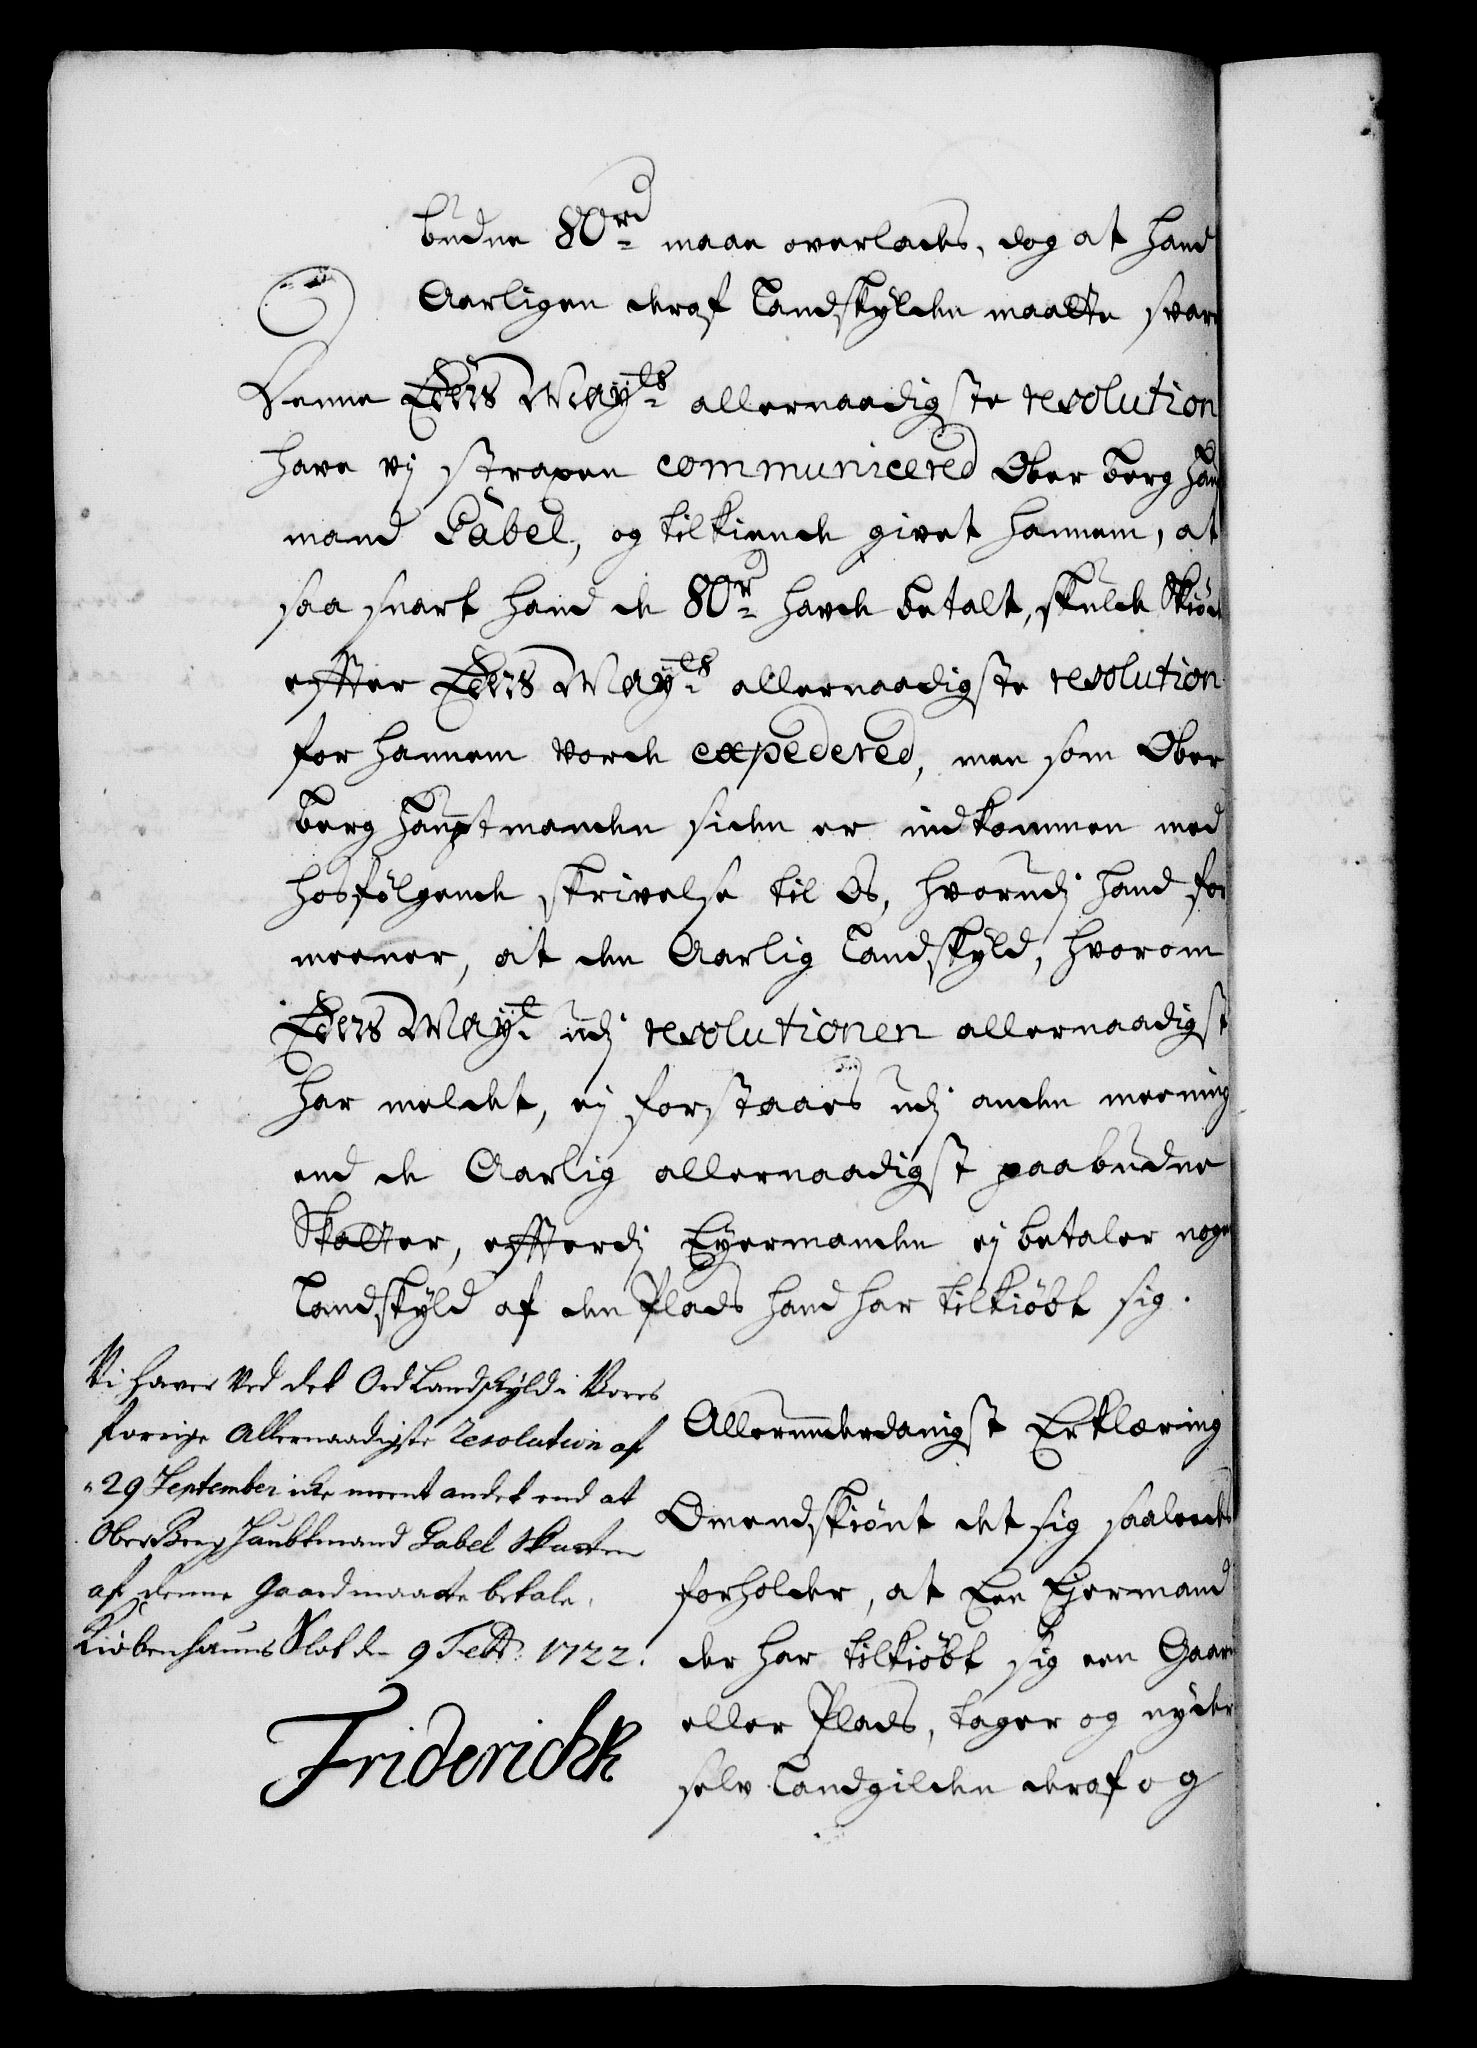 budne 80 rd maae overlades, dog at hand
Aarligen deraf Landskylden maatte svar
Denne Eders Mayts allernaadigste resolution
have vj strapen communicered Ober berg Hau
mand Gabel, og tilkiende givet hannem, at
saa snart hand de 80 r havde betalt, skulde Skiød
effter Eders Mayts allernaadigste resolution
for hannem vorde expedered, men som Ober
berg Hauptmanden siden er indkommen med
hosfölgende skrivelse til Os, hvorudj hand for
meener, at den Aarlig Landskyld, hvorom
Eders Mayt udj resolutionen allernaadigst
har meldet, ej forstaaes udj anden meening
end de Aarlig allernaadigst paabudne
Skatter, effterdj Eyermanden ej betaler noge
Landskyld af den Plads hand har tilkiöbt sig.
Vi haver Ved det Ord Landskyld i Vores
forrige Allernaadigste Resolution af
29 September icke meent andet end at
Ober Berg Haubtmand Gabel Skatten
af denne Gaard maatte betale.
Kiöbenhauns Slot d. 9 Febr: 1722.
FriderichR
Allerunderdanigst Erklæring
Omendskiönt det sig saaledes
forholder, at Een Ejermand
der har tilkiöbt sig een Gaar
eller Plads, tager og nyder
selv Landgilden deraf og